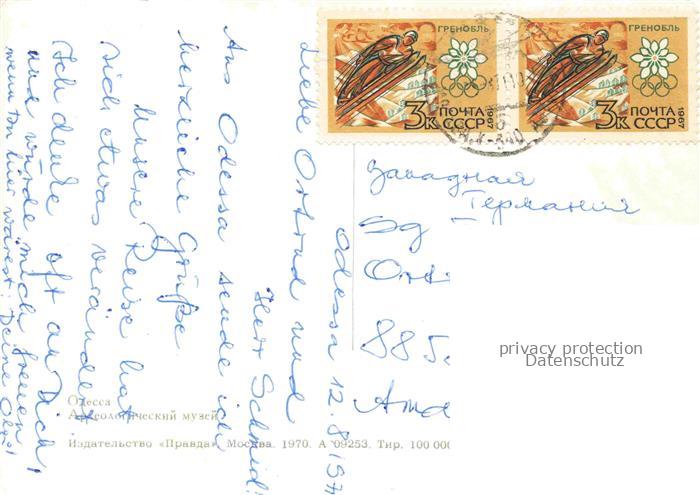 ГРЕНОБЛЬ
3к ПОЧТА
СССР
1967
ГРЕНОБЛЬ
3к ПОЧТА
СССР
1967
Западная
Германия
885
privacy protection
Datenschutz
Odessa 12.8.197
Liebe Ortrud und
Herr Schmid!
Aus Odessa sende ich
herzliche Grüße
Unsere Reise hat
sich etwas verändert
Ich denke oft an Dich!
und würde mich freuen,
wenn Du hier wärest! Deine Olga!
Одесса
Археологический музей
Издательство «Правда». Москва. 1970. А 09253. Тир. 100 000